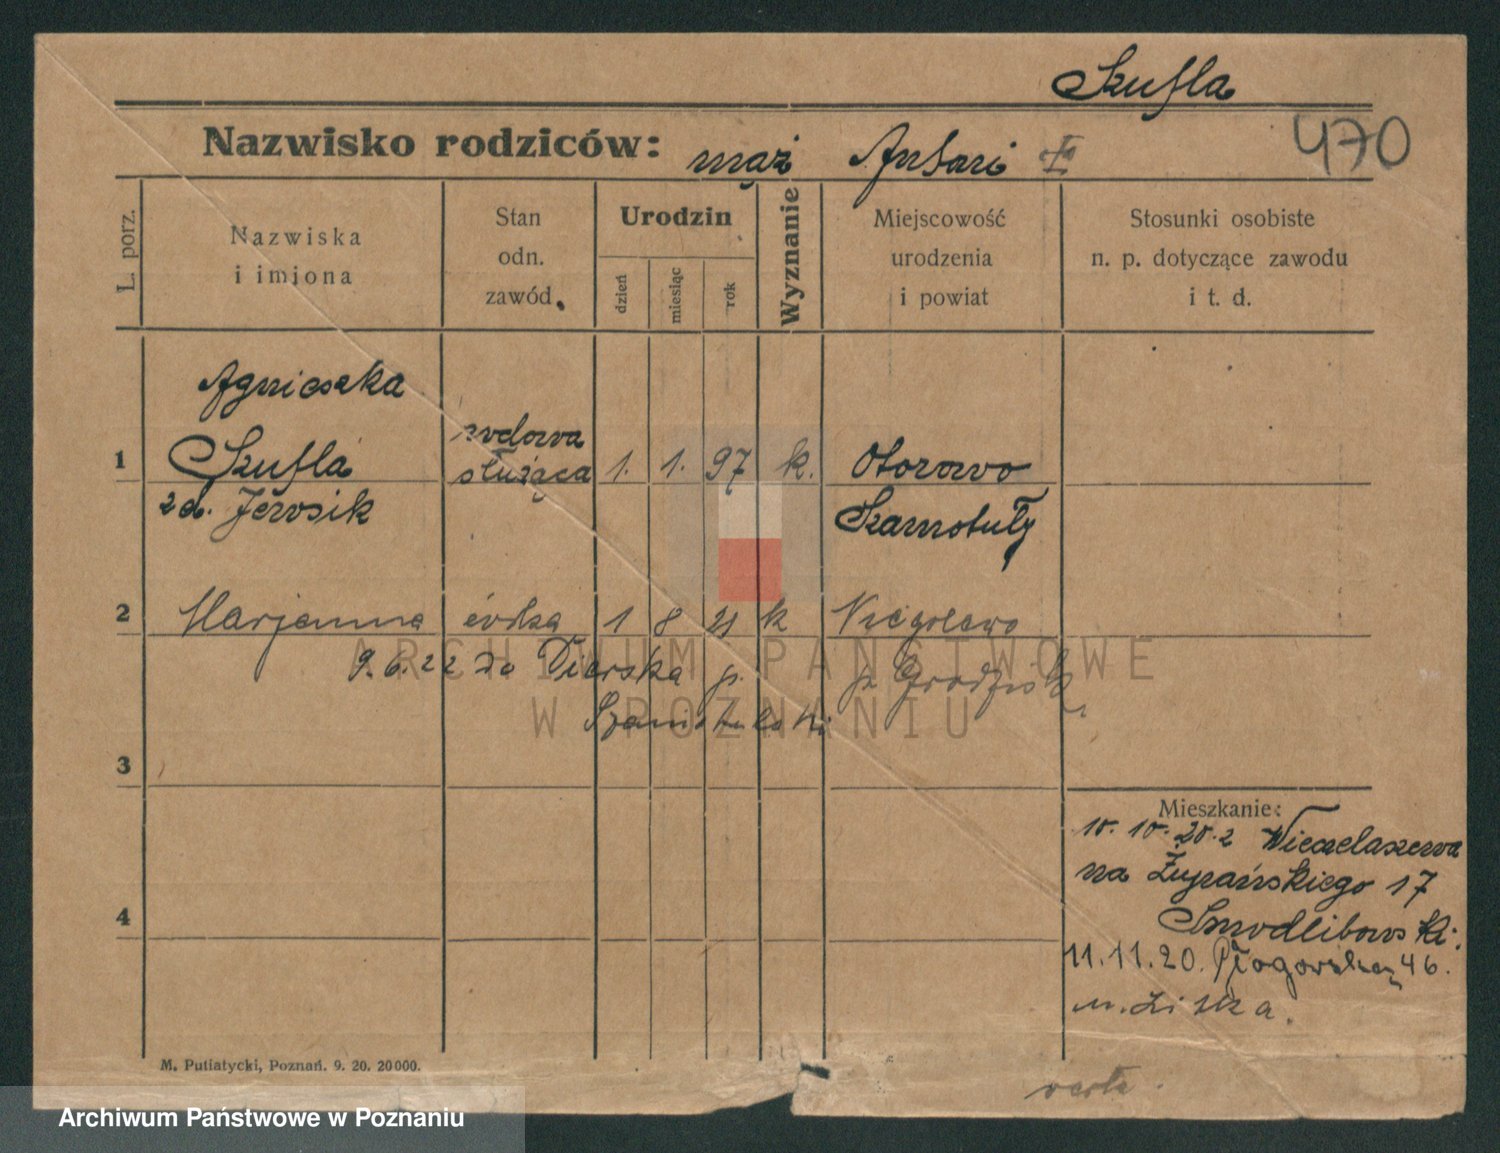 Szufla
Nazwisko rodziców: mąż Ansari
470
L. porz.
Nazwiska
i imiona
Stan
odn.
zawód.
Urodzin
dzień
miesiąc
rok
Wyznanie
Miejscowość
urodzenia
i powiat
Stosunki osobiste
n. p. dotyczące zawodu
i t. d.
Agnieszka
1 Szufla wdowa służąca 1. 1. 97 k. Otorowo
zd. Jerosik Szamotuły
2 Marjanna córka 1 8 21 k
9.6.22 do p. p. Grodzisk
3
4
Mieszkanie:
10. 10. 20. z
na Żupańskiego 17
Smodlibowski.
11.11.20. Głogowska 46.
ARCHIWUM PAŃSTWOWE
W POZNANIU
M. Putiatycki, Poznań. 9. 20. 20000.
Archiwum Państwowe w Poznaniu